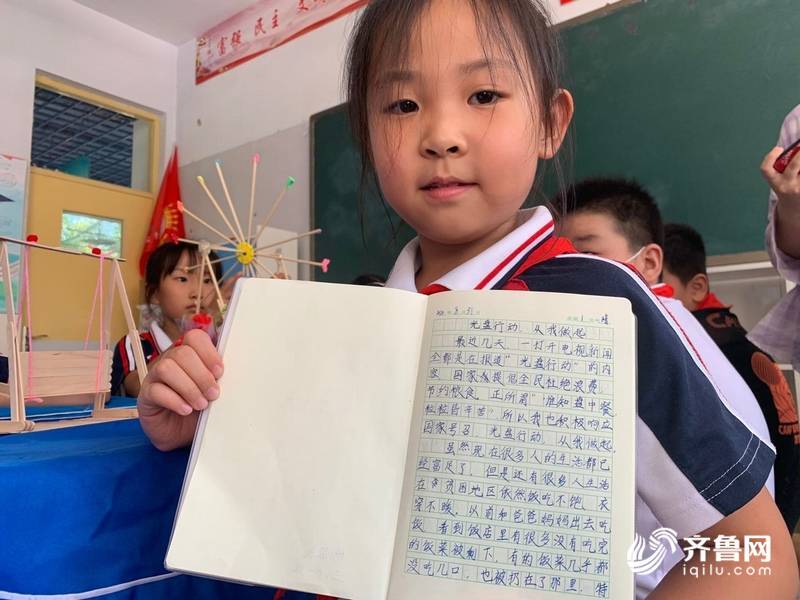 富强 民主 文
光盘行动，从我做起
最近几天，一打开电视新闻
全都是在报道"光盘行动"的内
容，国家在提倡全民杜绝浪费，
节约粮食。正所谓"谁知盘中餐，
粒粒皆辛苦"所以我也积极响应
国家号召，光盘行动，从我做起。
虽然现在很多人的生活都已
经富足了，但是还有很多人生活
在贫困地区依然饭吃不饱，衣
穿不暖。以前和爸爸妈妈出去吃
饭，看到饭店里有很多没有吃完
的饭菜被剩下，有的饭菜几乎都
没吃几口，也被扔在了那里，特
齐鲁网
iqilu.com